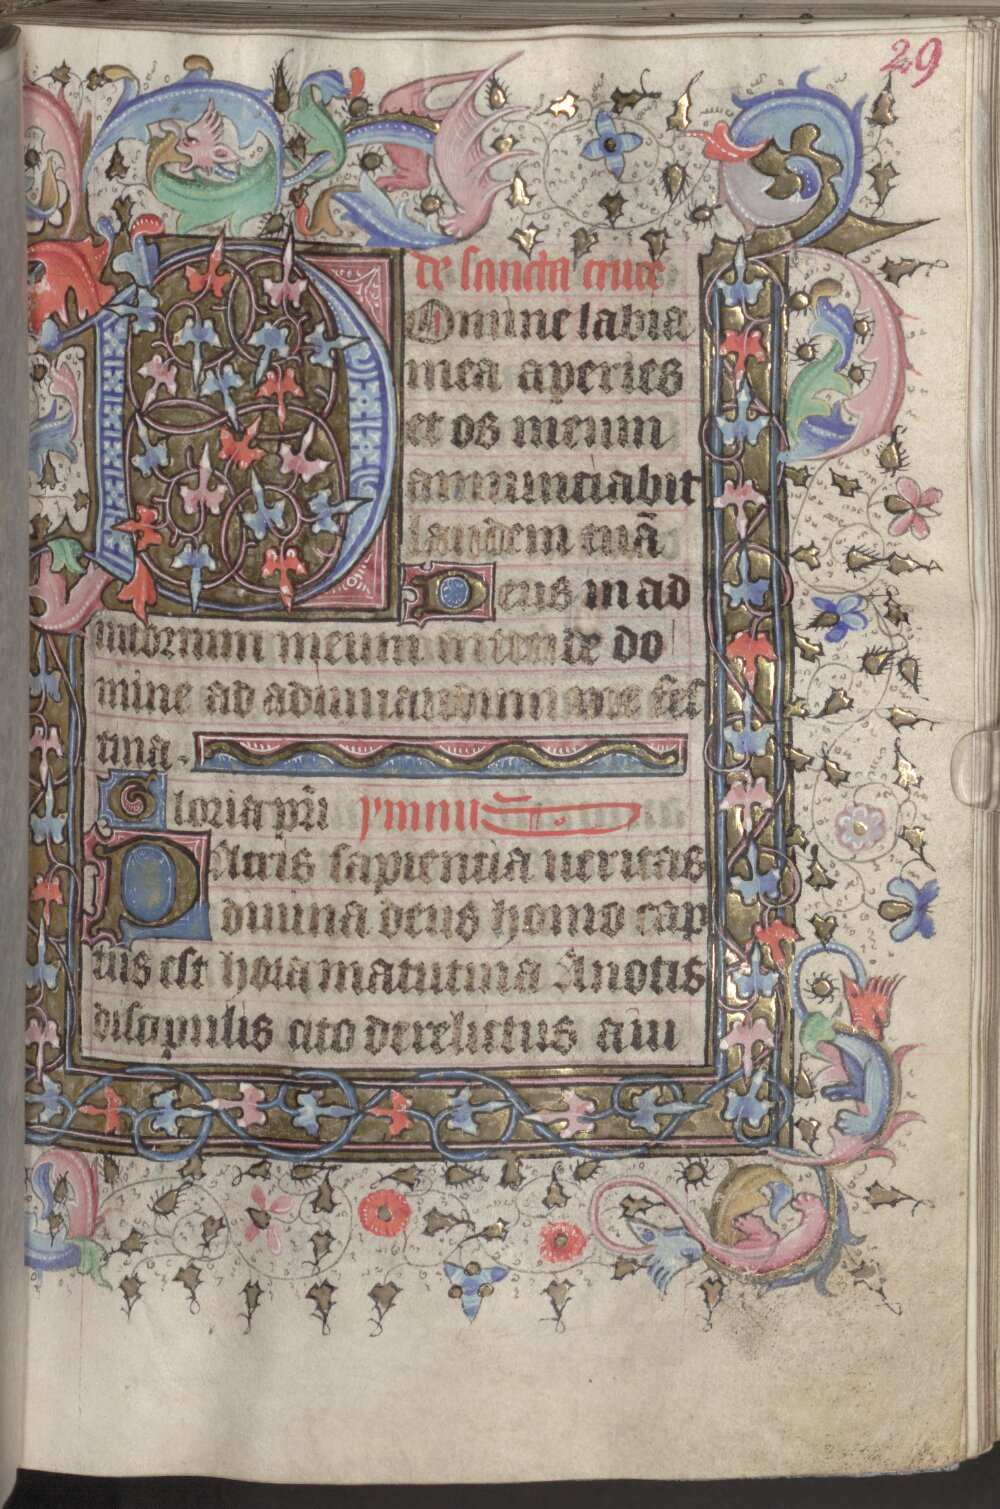 29
de sancta cruce
Domine labia
mea aperies
et os meum
annunciabit
laudem tuā
Deus in ad
iutorium meum intende do
mine ad adiuuandum me fes
tina.
Gloria pr̄i ymnus
Patris sapientia ueritas
diuina deus homo cap
tus est hora matutina A notis
discipulis cito derelictus a iu